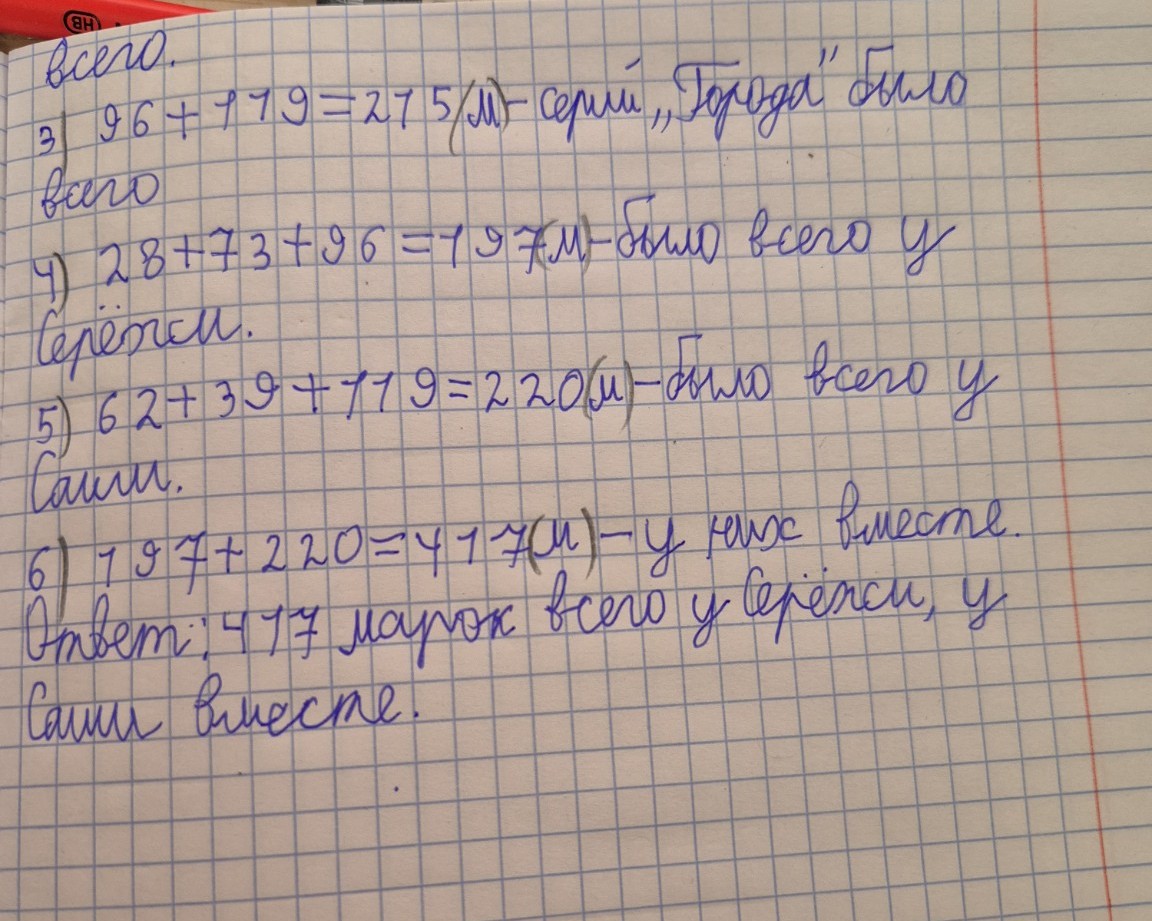 HB
всего.
3) 96+119=215(м)-серий „Города" было
всего
4) 28+73+96=197(м)-было всего у
Серёжи.
5) 62+39+119=220(м)-было всего у
Саши.
6) 197+220=417(м)-у них вместе.
Ответ: 417 марок всего у Серёжи, у
Саши вместе.